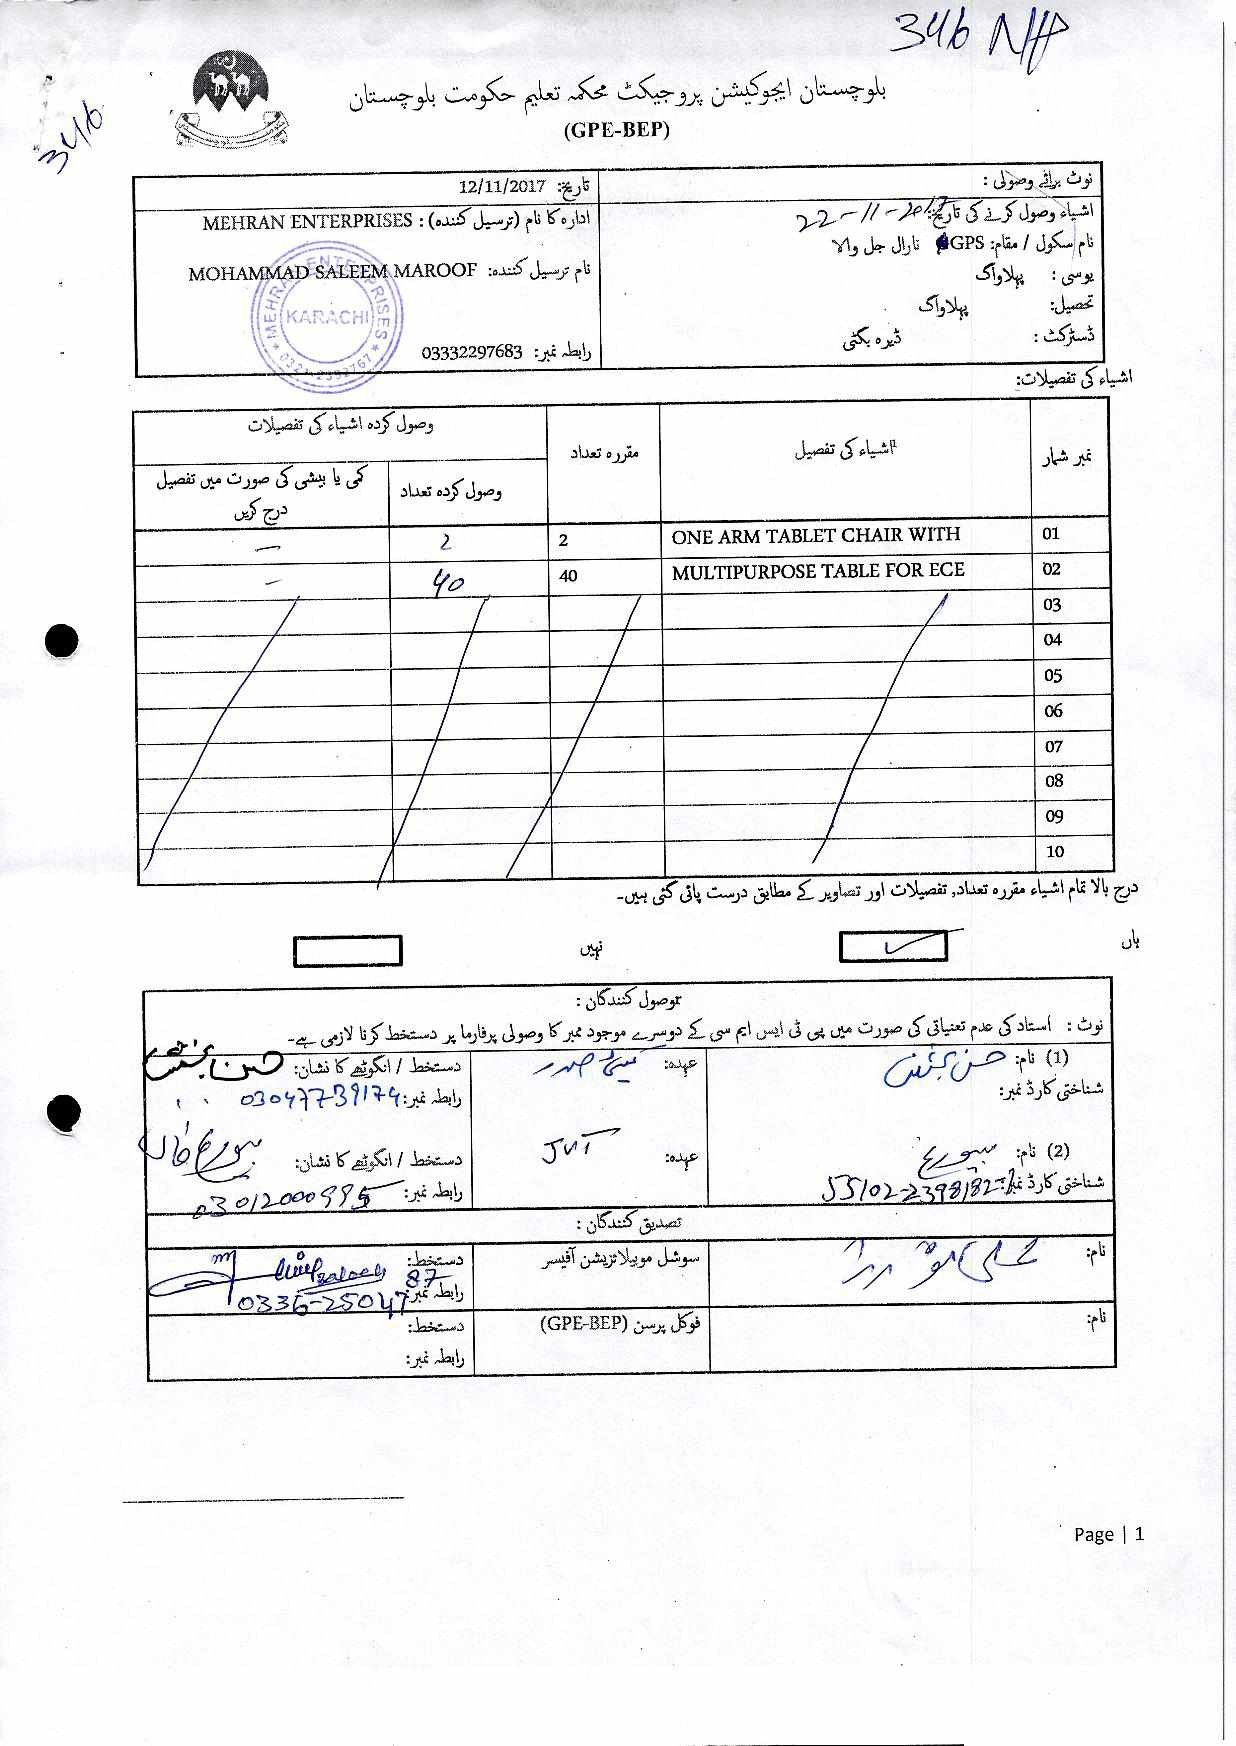 346
346
بلوچستان ایجوکیشن پروجیکٹ محکمہ تعلیم حکومت بلوچستان
(GPE-BEP)
نوٹ برائے وصولی :
اشیاء وصول کرنے کی تاریخ: 22-11-2017
نام سکول / مقام: GPS نارال جل والا
یوسی : پھلاواگ
تحصیل: پھلاواگ
ڈسٹرکٹ : ڈیرہ بگٹی
تاریخ: 12/11/2017
ادارہ کا نام (ترسیل کنندہ) : MEHRAN ENTERPRISES
نام ترسیل کنندہ: MOHAMMAD SALEEM MAROOF
رابطہ نمبر: 03332297683
MEHRAN ENTERPRISES
KARACHI
اشیاء کی تفصیلات:
نمبر شمار اشیاء کی تفصیل مقررہ تعداد وصول کردہ اشیاء کی تفصیلات
وصول کردہ تعداد کمی یا بیشی کی صورت میں تفصیل درج کریں
01 ONE ARM TABLET CHAIR WITH 2 2 —
02 MULTIPURPOSE TABLE FOR ECE 40 40 —
03
04
05
06
07
08
09
10
درج بالا تمام اشیاء مقررہ تعداد, تفصیلات اور تصاویر کے مطابق درست پائی گئی ہیں۔
ہاں ✓ نہیں
وصول کنندگان :
نوٹ : استاد کی عدم تعیناتی کی صورت میں پی ٹی ایس ایم سی کے دوسرے موجود ممبر کا وصولی پرفارما پر دستخط کرنا لازمی ہے۔
(1) نام: عہدہ: دستخط / انگوٹھے کا نشان:
شناختی کارڈ نمبر: رابطہ نمبر: 03047739174
(2) نام: عہدہ: JVT دستخط / انگوٹھے کا نشان:
شناختی کارڈ نمبر: رابطہ نمبر: 03012000995
تصدیق کنندگان :
نام: سوشل موبیلائزیشن آفیسر دستخط:
رابطہ نمبر: 0336-2504787
نام: فوکل پرسن (GPE-BEP) دستخط:
رابطہ نمبر:
Page | 1